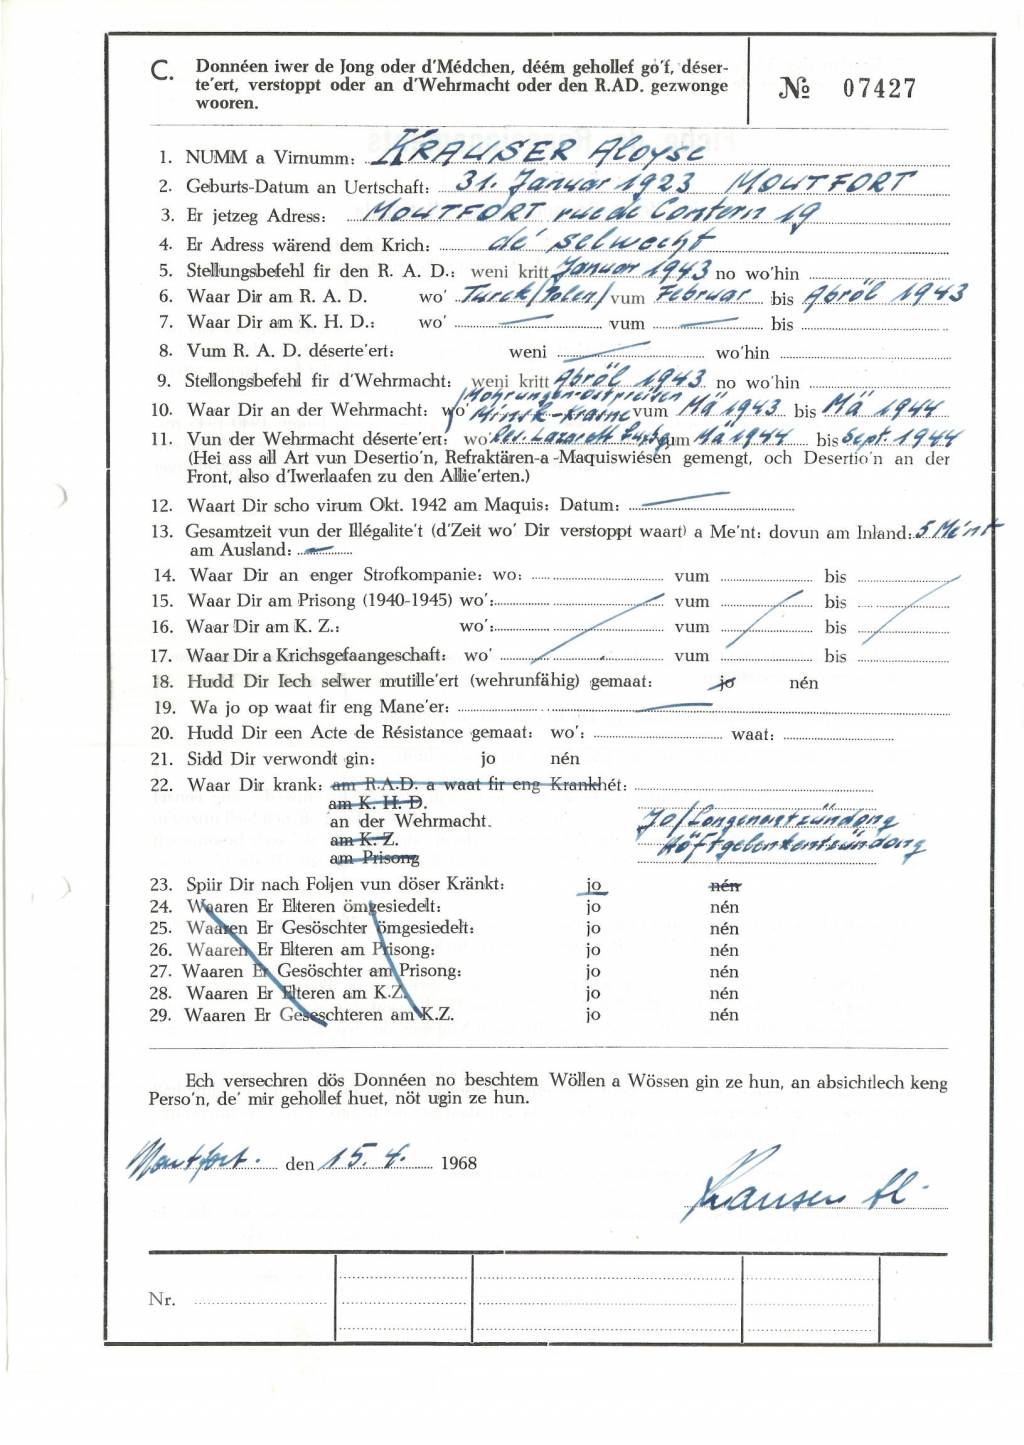 C. Donnéen iwer de Jong oder d'Médchen, déém gehollef go'f, déser-
te'ert, verstoppt oder an d'Wehrmacht oder den R.AD. gezwonge
wooren.
№ 07427
1. NUMM a Virnumm: KRAUSER Aloyse
2. Geburts-Datum an Uertschaft: 31. Januar 1923 MOUTFORT
3. Er jetzeg Adress: MOUTFORT rue de Contern 19
4. Er Adress wärend dem Krich: dé selwecht
5. Stellungsbefehl fir den R. A. D.: weni kritt Januar 1943 no wo'hin
6. Waar Dir am R. A. D. wo' Turek/Polen/ vum Februar bis Abröl 1943
7. Waar Dir am K. H. D.: wo' — vum — bis
8. Vum R. A. D. déserte'ert: weni — wo'hin
9. Stellongsbefehl fir d'Wehrmacht: weni kritt Abröl 1943 no wo'hin
Mohrungen-ostpreisen
10. Waar Dir an der Wehrmacht: wo' Minsk-Krasne vum Mä 1943 bis Mä 1944
11. Vun der Wehrmacht déserte'ert: wo' Res. Lazarett vum Mä 1944 bis Sept. 1944
(Hei ass all Art vun Desertio'n, Refraktären-a -Maquiswiésen gemengt, och Desertio'n an der
Front, also d'Iwerlaafen zu den Allie'erten.)
12. Waart Dir scho virum Okt. 1942 am Maquis: Datum: —
13. Gesamtzeit vun der Illégalite't (d'Zeit wo' Dir verstoppt waart) a Me'nt: dovun am Inland: 5 Mé'nt
am Ausland: —
14. Waar Dir an enger Strofkompanie: wo: vum bis
15. Waar Dir am Prisong (1940-1945) wo': vum bis
16. Waar Dir am K. Z.: wo': vum bis
17. Waar Dir a Krichsgefaangeschaft: wo' vum bis
18. Hudd Dir Iech selwer mutille'ert (wehrunfähig) gemaat: jo nén
19. Wa jo op waat fir eng Mane'er: —
20. Hudd Dir een Acte de Résistance gemaat: wo': waat:
21. Sidd Dir verwondt gin: jo nén
22. Waar Dir krank: am R.A.D. a waat fir eng Krankhét:
am K. H. D.
an der Wehrmacht. Jo/Longenentzündong
am K. Z. Höftgelenkentzündong
am Prisong
23. Spiir Dir nach Foljen vun döser Kränkt: jo nén
24. Waaren Er Elteren ömgesiedelt: jo nén
25. Waaren Er Gesöschter ömgesiedelt: jo nén
26. Waaren Er Elteren am Prisong: jo nén
27. Waaren Er Gesöschter am Prisong: jo nén
28. Waaren Er Elteren am K.Z. jo nén
29. Waaren Er Geseschteren am K.Z. jo nén
Ech versechren dös Donnéen no beschtem Wöllen a Wössen gin ze hun, an absichtlech keng
Perso'n, de' mir gehollef huet, nöt ugin ze hun.
Moutfort. den 15. 4. 1968
Krauser Al.
Nr.